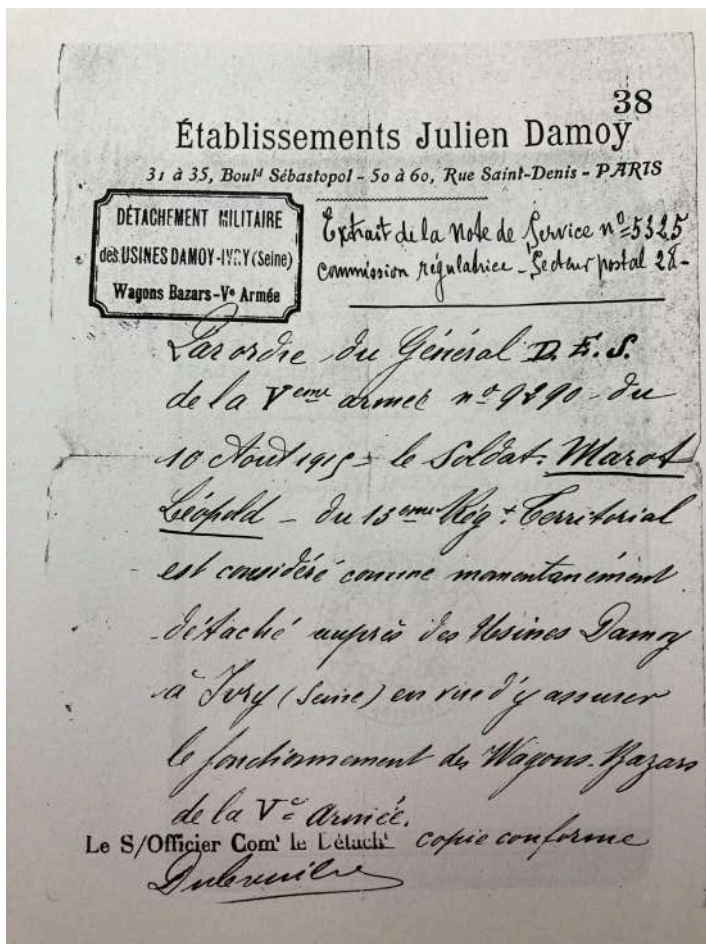 38
Établissements Julien Damoy
31 à 35, Boulᵈ Sébastopol - 50 à 60, Rue Saint-Denis - PARIS
DÉTACHEMENT MILITAIRE
des USINES DAMOY-IVRY (Seine)
Wagons Bazars-Vᵉ Armée
Extrait de la Note de Service nº 5325
Commission régulatrice - Secteur postal 28 -
Par ordre du Général D. E. S.
de la Vᵉᵐᵉ armée nº 9290 - du
10 Août 1915 - le Soldat. Marot
Léopold - du 13ᵉᵐᵉ Régᵗ Territorial
est considéré comme momentanément
détaché auprès des Usines Damoy
à Ivry (Seine) en vue d'y assurer
le fonctionnement des Wagons-Bazars
de la Vᵉ Armée.
Le S/Officier Comᵗ le Détachᵗ copie conforme